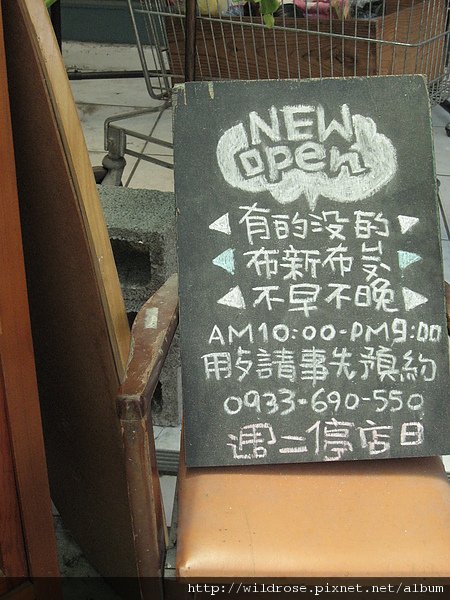 NEW
open
有的沒的
布新布
不早不晚
AM10:00-PM9:00
用歺請事先預約
0933-690-550
週二停店日
http://wildrose.pixnet.net/album